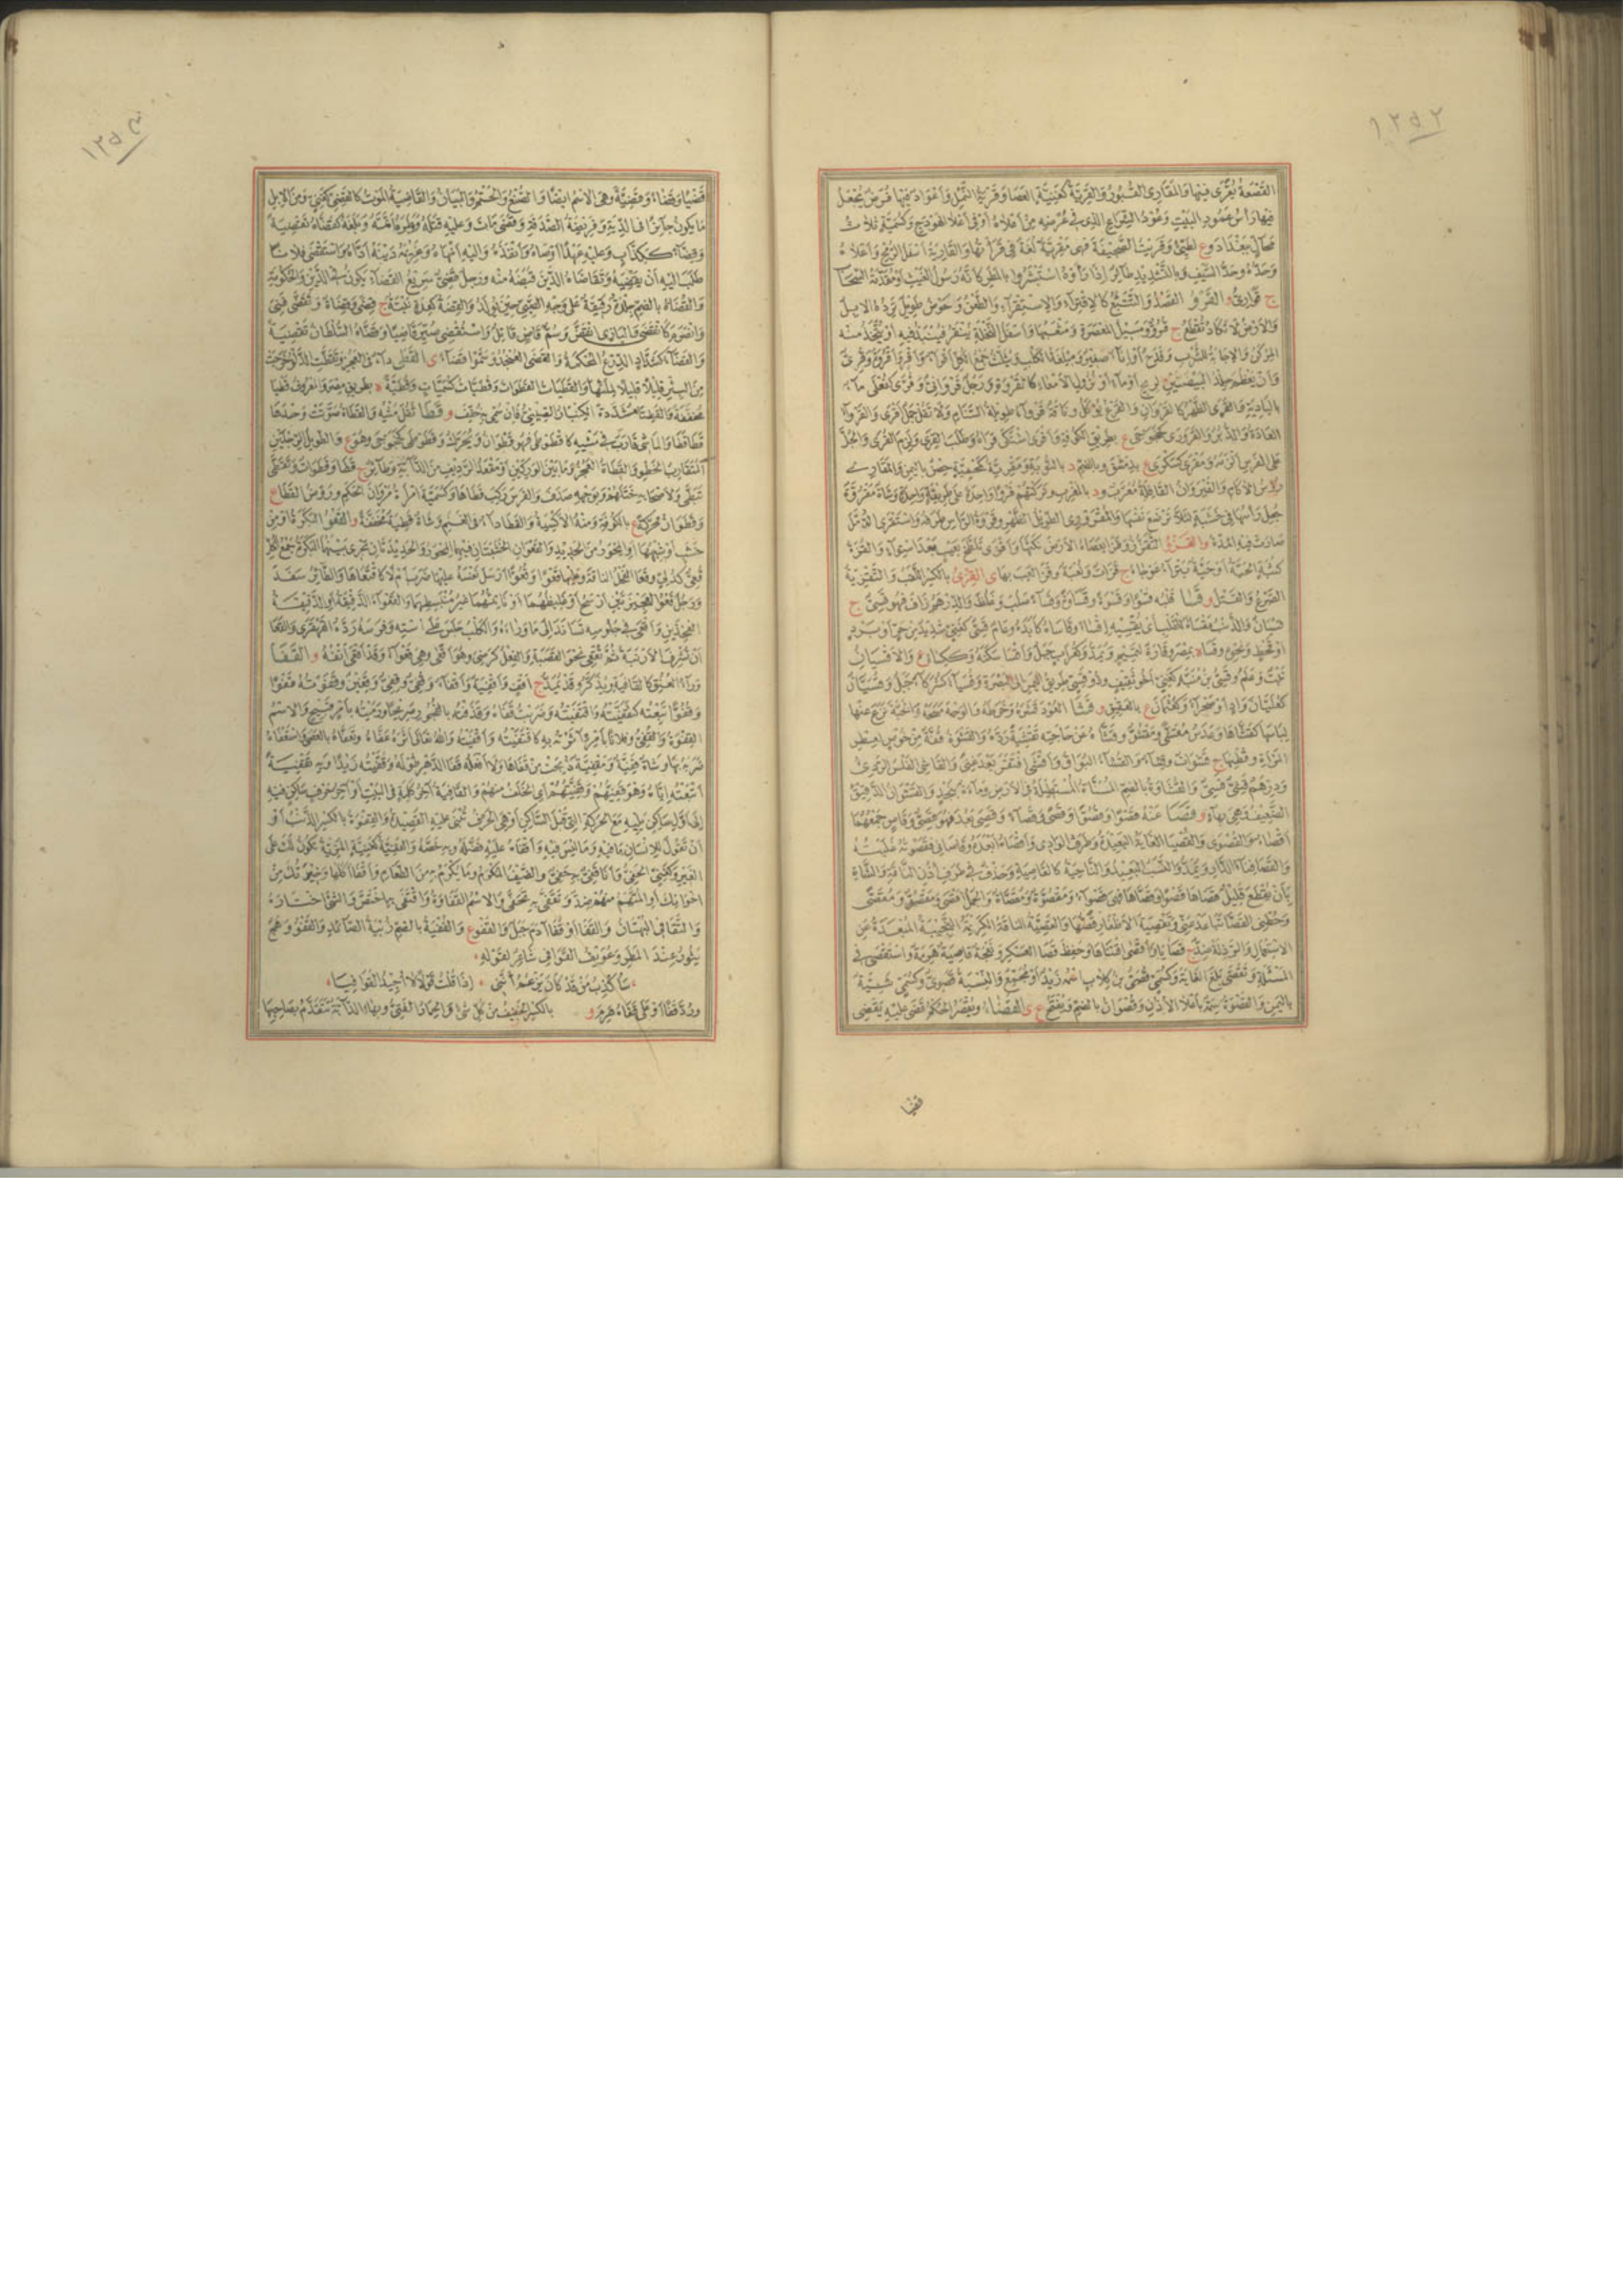 ١٢٥٢
القصعة يقرى فيها والمقاري القبور والقرية كغنية العصا وقرية النمل وأعواد فيها فرض يجعل
فيها رأس عمود البيت وعود الشراع الذي في عرضه من أعلاه أو في أعلا الهودج وكسمية ثلاث
محال ببغداد وع لطيئ وقريت الصحيفة فهي مقرية لغة في قرأتها والقارية أسفل الرمح وأعلاه
وحده وحد السيف وبالتشديد طائر إذا رأوه استبشروا بالمطر كأنه رسول الغيث أو مقدمة السحاب
ج قواري و القرو القصد والتتبع كالاقتراء والاستقراء والطعن وحوض طويل ترده الإبل
والأرض لا تكاد تقطع ج قرو ومسيل المعصرة ومثعبها وأسفل النخلة ينقر فينبذ فيه أو يتخذ منه
المركن والإجانة للشرب وقدح أو إناء صغير وميلغة الكلب ويثلث جمع الكل أقراء وأقر وأقروة وقري
وأن يعظم جلد البيضتين لريح أو ماء أو نزول الأمعاء كالقروة ورجل قرواني وقرى كفعلى ماء
بالبادية والقرى الظهر كالقروان والقرع يؤكل وناقة قرواء طويلة السنام ولا تقل جمل أقرى والقرواء
العادة والدبر والقرورى كخجوجى ع بطريق الكوفة وأقرى اشتكى قراه وطلب القرى ولزم القرى والجل
على الفرس ألزمه ومقرى كسكرى ة بدمشق وبالضم د بالنوبة ومقرية كمحسنة حصن باليمن والمقاري
رؤس الأكام والقيروان القافلة معرب ود بالمغرب وتركتهم قروا واحدا على طريقة واحدة وشاة مقروة
جعل رأسها في خشبة لئلا ترضع نفسها والمقرورى الطويل الظهر وقروة الرأس طرفه واستقرى الدمل
صارت فيه المدة و القزو التقزز وقزا بعصاه الأرض نكتها وأقزى تلطخ بعيب بعد استواء والقزة
كثبة الحية أو حية بتراء عوجاء ج قزات ولعبة وقزا لعب بها ى القزي بالكسر اللقب والتقزية
الصرع والقتل و قسا قلبه قسوا وقسوة وقساوة وقساء صلب وغلظ والدرهم زاف فهو قسي ج
قسيان والذنب مقساة للقلب أي يقسيه إقساء وقاساه كابده وعام قسي كغني شديد من حر أو برد
أو قحط ونحوه وقسا ة بمصر وقارة لتميم ويمد وكغراب جبل وأقسا سكنه وككساء ع والأقسيان
نبت وعلم وقسي بن منبه كغني أخو ثقيف وذو قسي طريق اليمن إلى البصرة وقسياء كشركاء جبل وقسيان
كعليان واد أو صحراء وكعثمان ع بالعقيق و قشا العود قشره وخرطه والوجه مسحه والحية نزع عنها
لباسها كقشاها وعدس مقشى ومقشو وقشاه عن حاجته تقشية رده والقشوة قفة من خوص لعطر
المرأة وقطنها ج قشوات وقشاء والقشاء البزاق وأقشى افتقر بعد غنى والقاشي الفلس الردي
ودرهم قشي قسي والقشاوة بالضم المسناة المستطيلة في الأرض وماءة بنجد والقشوان الدقيق
الضعيف وهي بهاء و قصا عنه قصوا وقصوا وقصى وقصاء وقصي بعد فهو قصي وقاص جمعهما
أقصاء والقصوى والقصيا الغاية البعيدة وطرف الوادي وأقصاه أبعده وقاصاني فقصوته غلبته
والقصا فناء الدار ويمد والنسب البعيد والناحية كالقاصية وحذف في طرف أذن الناقة والشاة
بأن يقطع قليل قصاها قصوا وقصاها فهي قصواء ومقصوة ومقصاة والجمل أقصى ومقصو ومقصى
وحظني القصا تباعد عني وتقصية الأظفار قصها والقصية الناقة الكريمة النجيبة المبعدة عن
الاستعمال والرذلة ضد ج قصايا وأقصى اقتناها وحفظ قصا العسكر ونعجة قاصية هرمة واستقصى في
المسئلة وتقصى بلغ الغاية وكسمي قصي بن كلاب اسمه زيد أو مجمع والنسبة قصوي وكسمي ثنية
باليمن والقصوة سمة بأعلا الأذن وقصوان بالضم ويفتح ع ى القضاء ويقصر الحكم قضى عليه يقضي
قضيا
١٢٥٣
قضيا وقضاء وقضية وهي الاسم أيضا والصنع والحتم والبيان والقاضية الموت كالقضي كغني ومن الإبل
ما يكون جائزا في الدية وفريضة الصدقة وقضى مات وعليه قتله ووطره أتمه وبلغه كقضاه تقضية
وقضاء ككذاب وعليه عهدا أوصاه وأنفذه وإليه أنهاه وغريمه دينه أداه واستقضى فلانا
طلب إليه أن يقضيه وتقاضاه الدين قبضه منه ورجل قضي سريع القضاء يكون في الدين والحكومة
والقضاة بالضم جلدة رقيقة على وجه الصبي حين يولد والقضة كعدة نبتة ج قضى وقضاة وتقضى فني
وانصرم كانقضى والبازي انقض وسم قاض قاتل واستقضي صير قاضيا وقضاه السلطان تقضية
والقضاء كشداد الدرع المحكمة والقضى العنجد وسموا قضاء ى القطى داء في العجز وتقطت الدلو خرجت
من البئر قليلا قليلا لملئها والقطيات القطوات وقطيات كسميات وقطية ة بطريق مصر والمعروف قطيا
مخففة والقطيا مشددة الركبتان القيسي وكان يسمى بحنيف و قطا ثقل مشيه والقطاة صوتت وحدها
قطا قطا والماشي قارب في مشيه كاقطوطى فهو قطوان ويحرك وقطوطى كخجوجى وهو ع والطويل الرجلين
المتقارب الخطو والقطاة العجز وما بين الوركين أو مقعد الرديف من الدابة وطائر ج قطا وقطوات وتقطى
تبطى ولأصحابه ختلهم وبوجهه صدف والفرس ركب قطاها وكسمية امرأة مروان بن الحكم وروض القطا ع
وقطوان محركة ع بالكوفة ومنه الأكسية والقطا داء في الغنم وشاة قطية مخففة و القعو البكرة أو من
خشب أو شبهها أو المحور من الحديد والقعوان الخشبتان فيهما المحور والحديدتان تجري بينهما البكرة جمع الكل
قعي كدلي وقعا الفحل الناقة وعليها قعوا وقعوا أرسل نفسه عليها ضرب أم لا كاقتعاها والطائر سفد
ورجل قعو العجيزتين أرسح أو غليظهما أو ناتئهما غير منبسطهما والقعواء الدقيقة أو الدقيقة
الفخذين وأقعى في جلوسه تساند إلى ما وراءه والكلب جلس على استه وفرسه رده القهقرى والقعا
أن تشرف الأرنبة ثم تقعي نحو القصبة والفعل كرضي وهو أقعى وهي قعواء وقد أقعى أنفه و القفا
وراء العنق كالقافية ويذكر وقد يمد ج أقف وأقفية وأقفاء وقفي وقفي وقفين وقفوته قفوا
وقفوا تبعته كتقفيته واقتفيته وضربت قفاه وقذفته بالفجور صريحا ورميته بأمر قبيح والاسم
القفوة والقفي وفلانا بأمر آثرته به كاقتفيته وأقفيته والله تعالى أثره عفاه وتقفاه بالعصا استقفاه
ضربه بها وشاة قفية ومقفية ذبحت من قفاها ولا أفعله قفا الدهر طوله وقفيته زيدا وبه تقفية
أتبعته إياه وهو قفيتهم وقفيتهم أي الخلف منهم والقافية آخر كلمة في البيت أو آخر حرف ساكن فيه
إلى أول ساكن يليه مع الحركة التي قبل الساكن أو هي الحرف تبنى عليه القصيدة والقفوة بالكسر الذنب أو
أن تقول للإنسان ما فيه وما ليس فيه وأقفاه عليه فضله وبه خصه والقفية كغنية المزية تكون لك على
الغير وكغني الحفي وأنا قفي به حفي والضيف المكرم وما يكرم به من الطعام وأقفا أكلها وخيرتك من
إخوانك أو المتهم منهم ضد وتقفى به تحفى والاسم القفاوة واقتفى به اختص والشيء اختاره
والتقافي البهتان والقفا أو قفا آدم جبل والقفو ع والقفية بالضم زبية الصائد والقفو وهج
يثور عند المطر وعويف القوافي شاعر لقوله
سأكذب من قد كان يزعم أنني إذا قلت قولا لا أجيد القوافيا
ورد قفا أو على قفاه هرم و بالكسر الخفيف من كل شيء والحمار الفتي وبهاء الدابة تتقدم بصاحبها